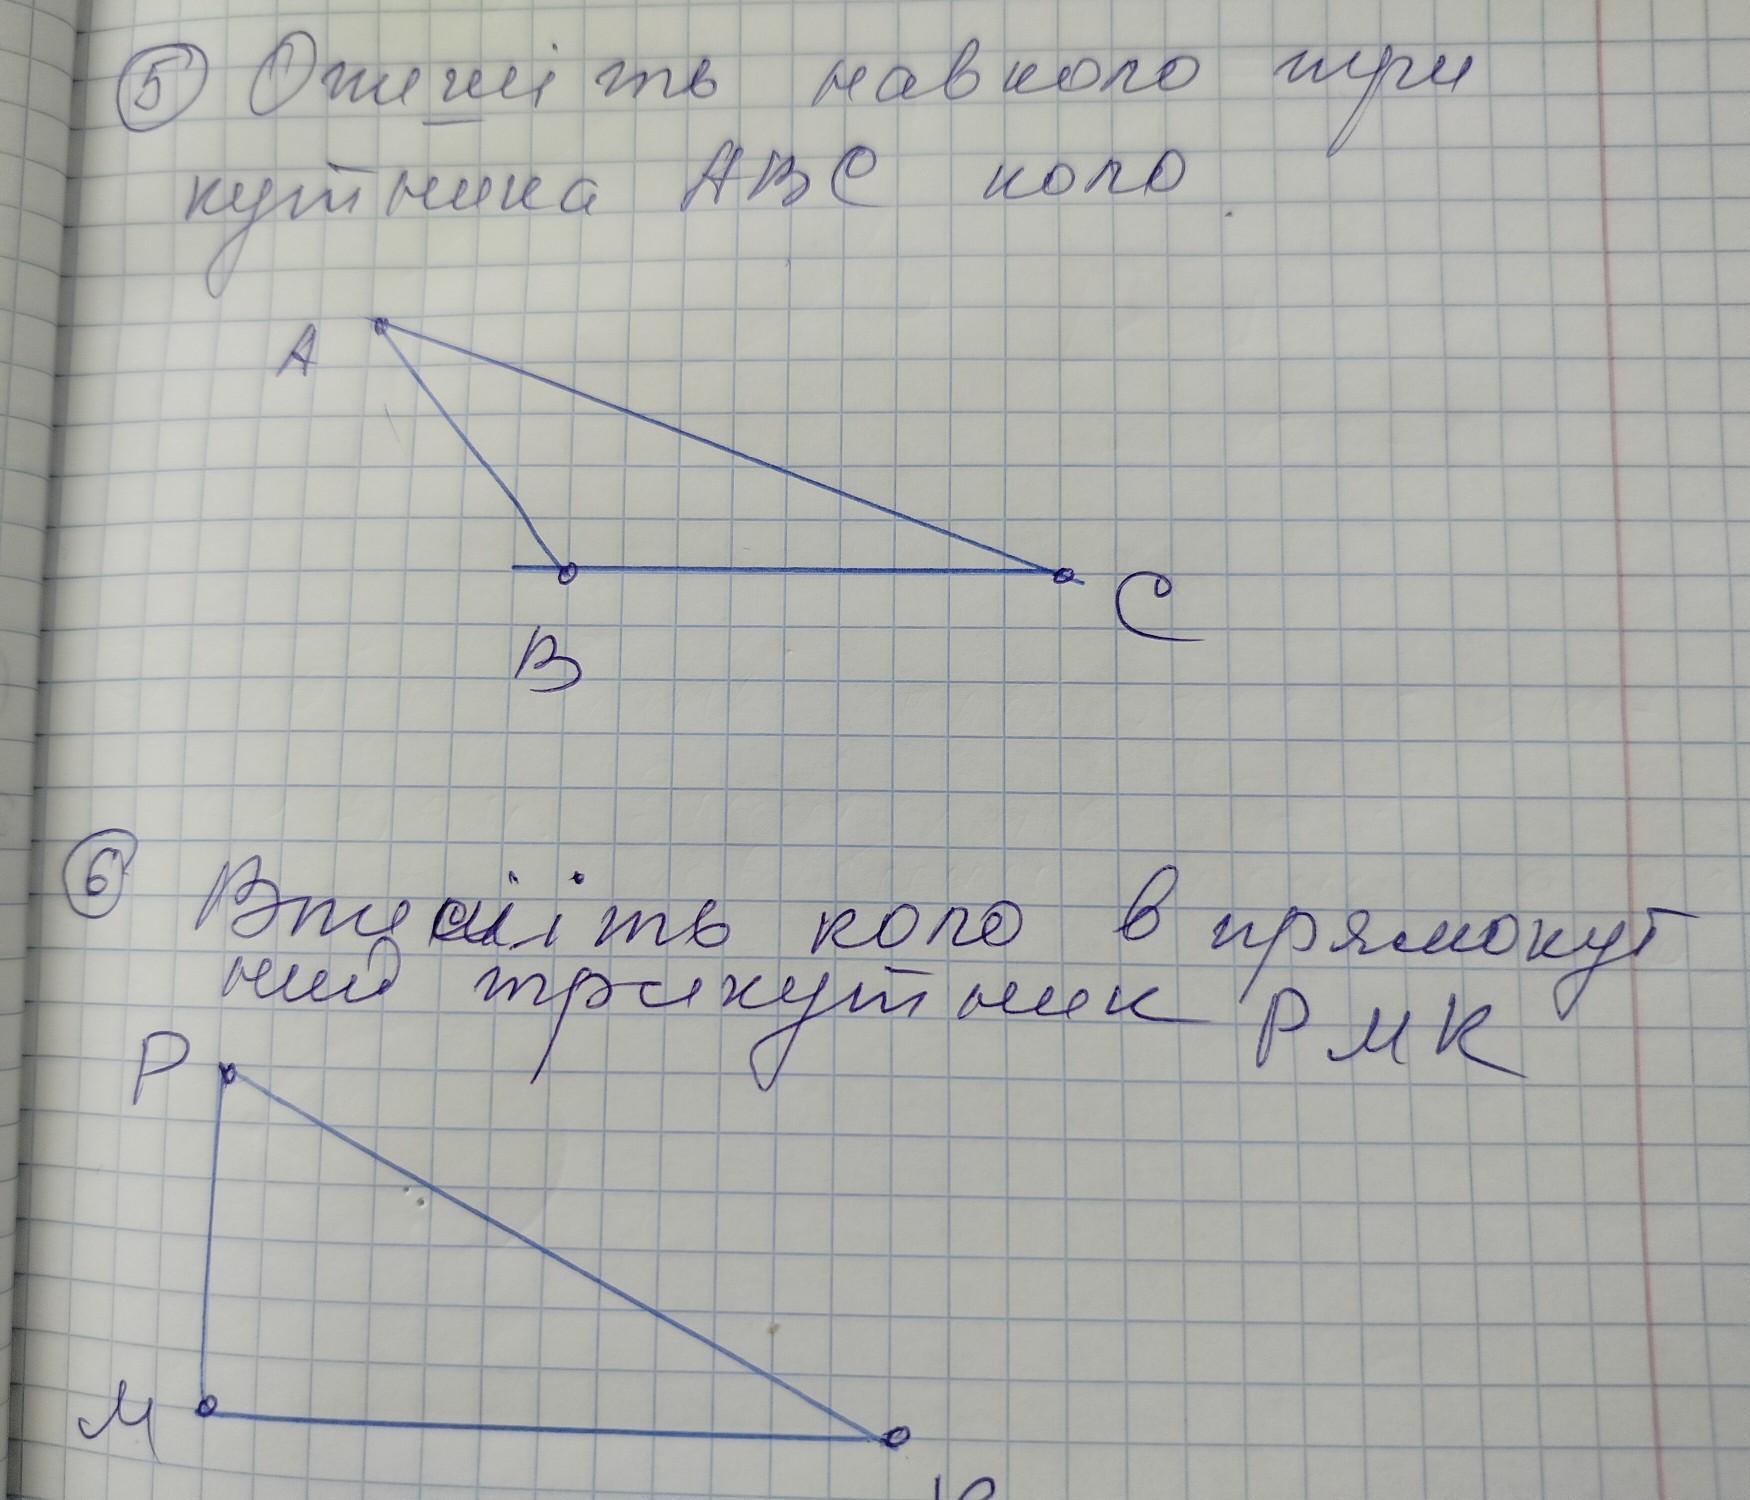 ⑤ Опишіть навколо три
кутника АВС коло.
А
В
С
⑥ Впишіть коло в прямокут
ний трикутник РМК
Р
М
К